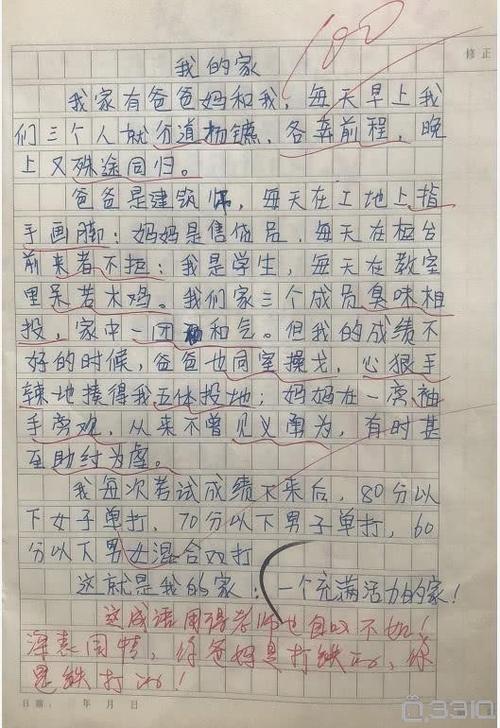 100
修正
我的家
我家有爸爸妈和我,每天早上我
们三个人就分道扬镳,各奔前程,晚
上又殊途同归。
爸爸是建筑师,每天在工地上指
手画脚;妈妈是售货员,每天在柜台
前来者不拒;我是学生,每天在教室
里呆若木鸡。我们家三个成员臭味相
投,家中一团和气。但我的成绩不
好的时候,爸爸也同室操戈,心狠手
辣地揍得我五体投地;妈妈在一离袖
手旁观,从来不曾见义勇为,有时甚
至助纣为虐。
我每次考试成绩下来后,80分以
下女子单打,70分以下男子单打,60
分以下男女混合双打
这就是我的家:一个充满活力的家!
这成语用得老师也自叹不如!
深表同情,你爸妈是打铁的,你
是铁打的!
日期: 年 月 日
3310